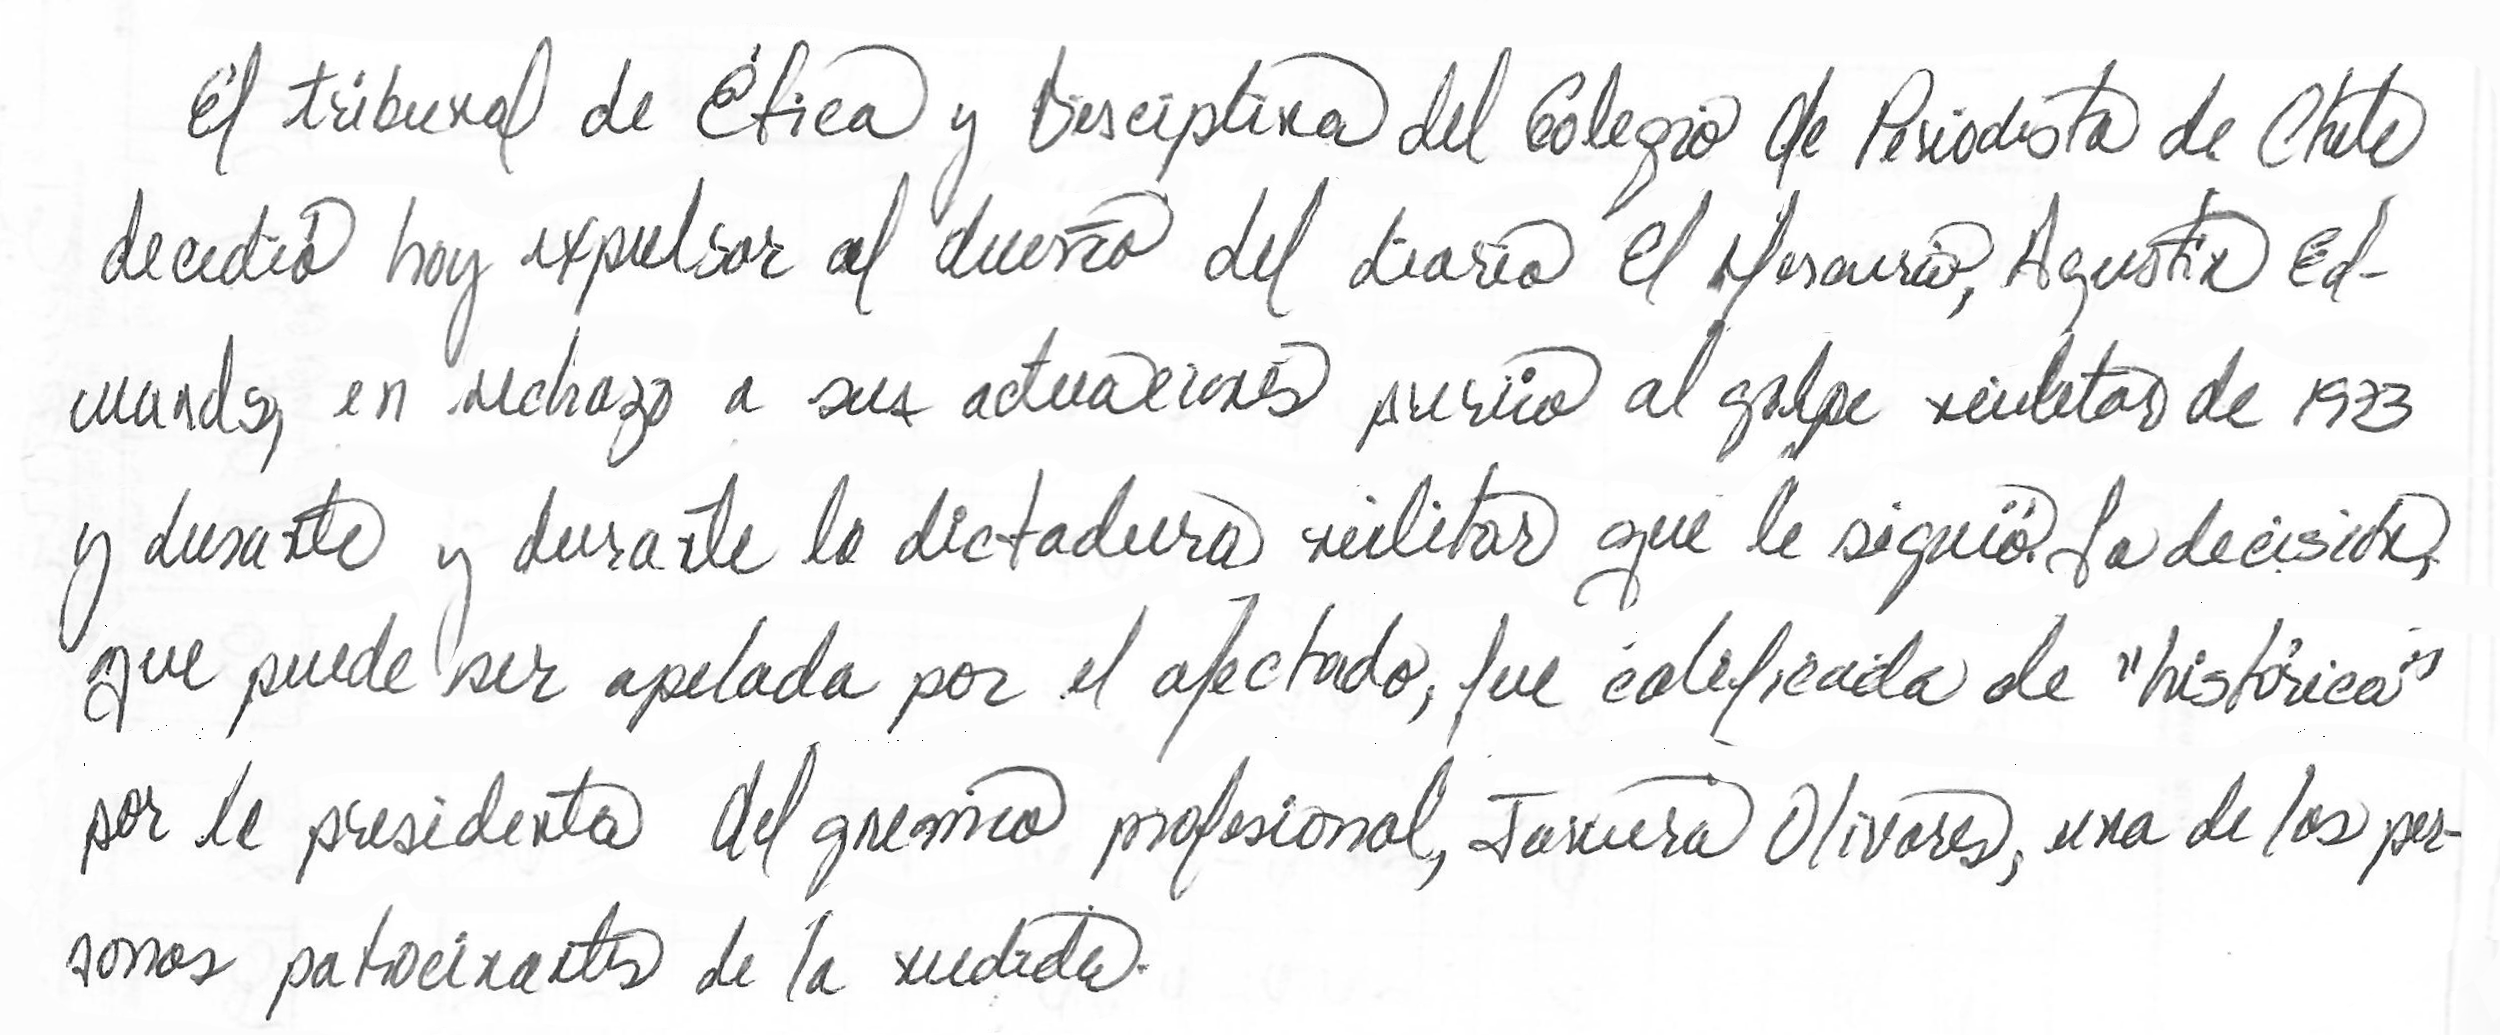 El tribunal de Ética y Disciplina del Colegio de Periodista de Chile
decidió hoy expulsar al dueño del diario El Mercurio, Agustín Ed-
wards, en rechazo a sus actuaciones previo al golpe militar de 1973
y durante y durante la dictadura militar que le siguió. La decisión,
que puede ser apelada por el afectado, fue calificada de "histórica"
por la presidenta del gremio profesional, Javiera Olivares, una de las per-
sonas patrocinantes de la medida.